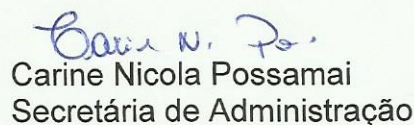 Carine N. Po.
Carine Nicola Possamai
Secretária de Administração